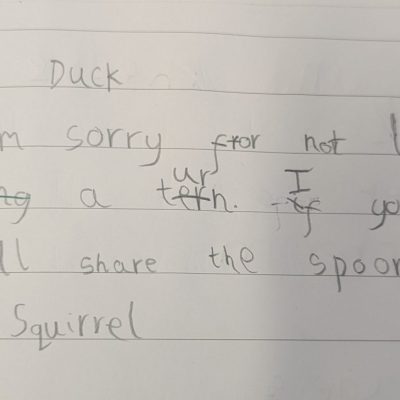 Duck
m sorry for not l
a turn. If yo
ll share the spoon
Squirrel